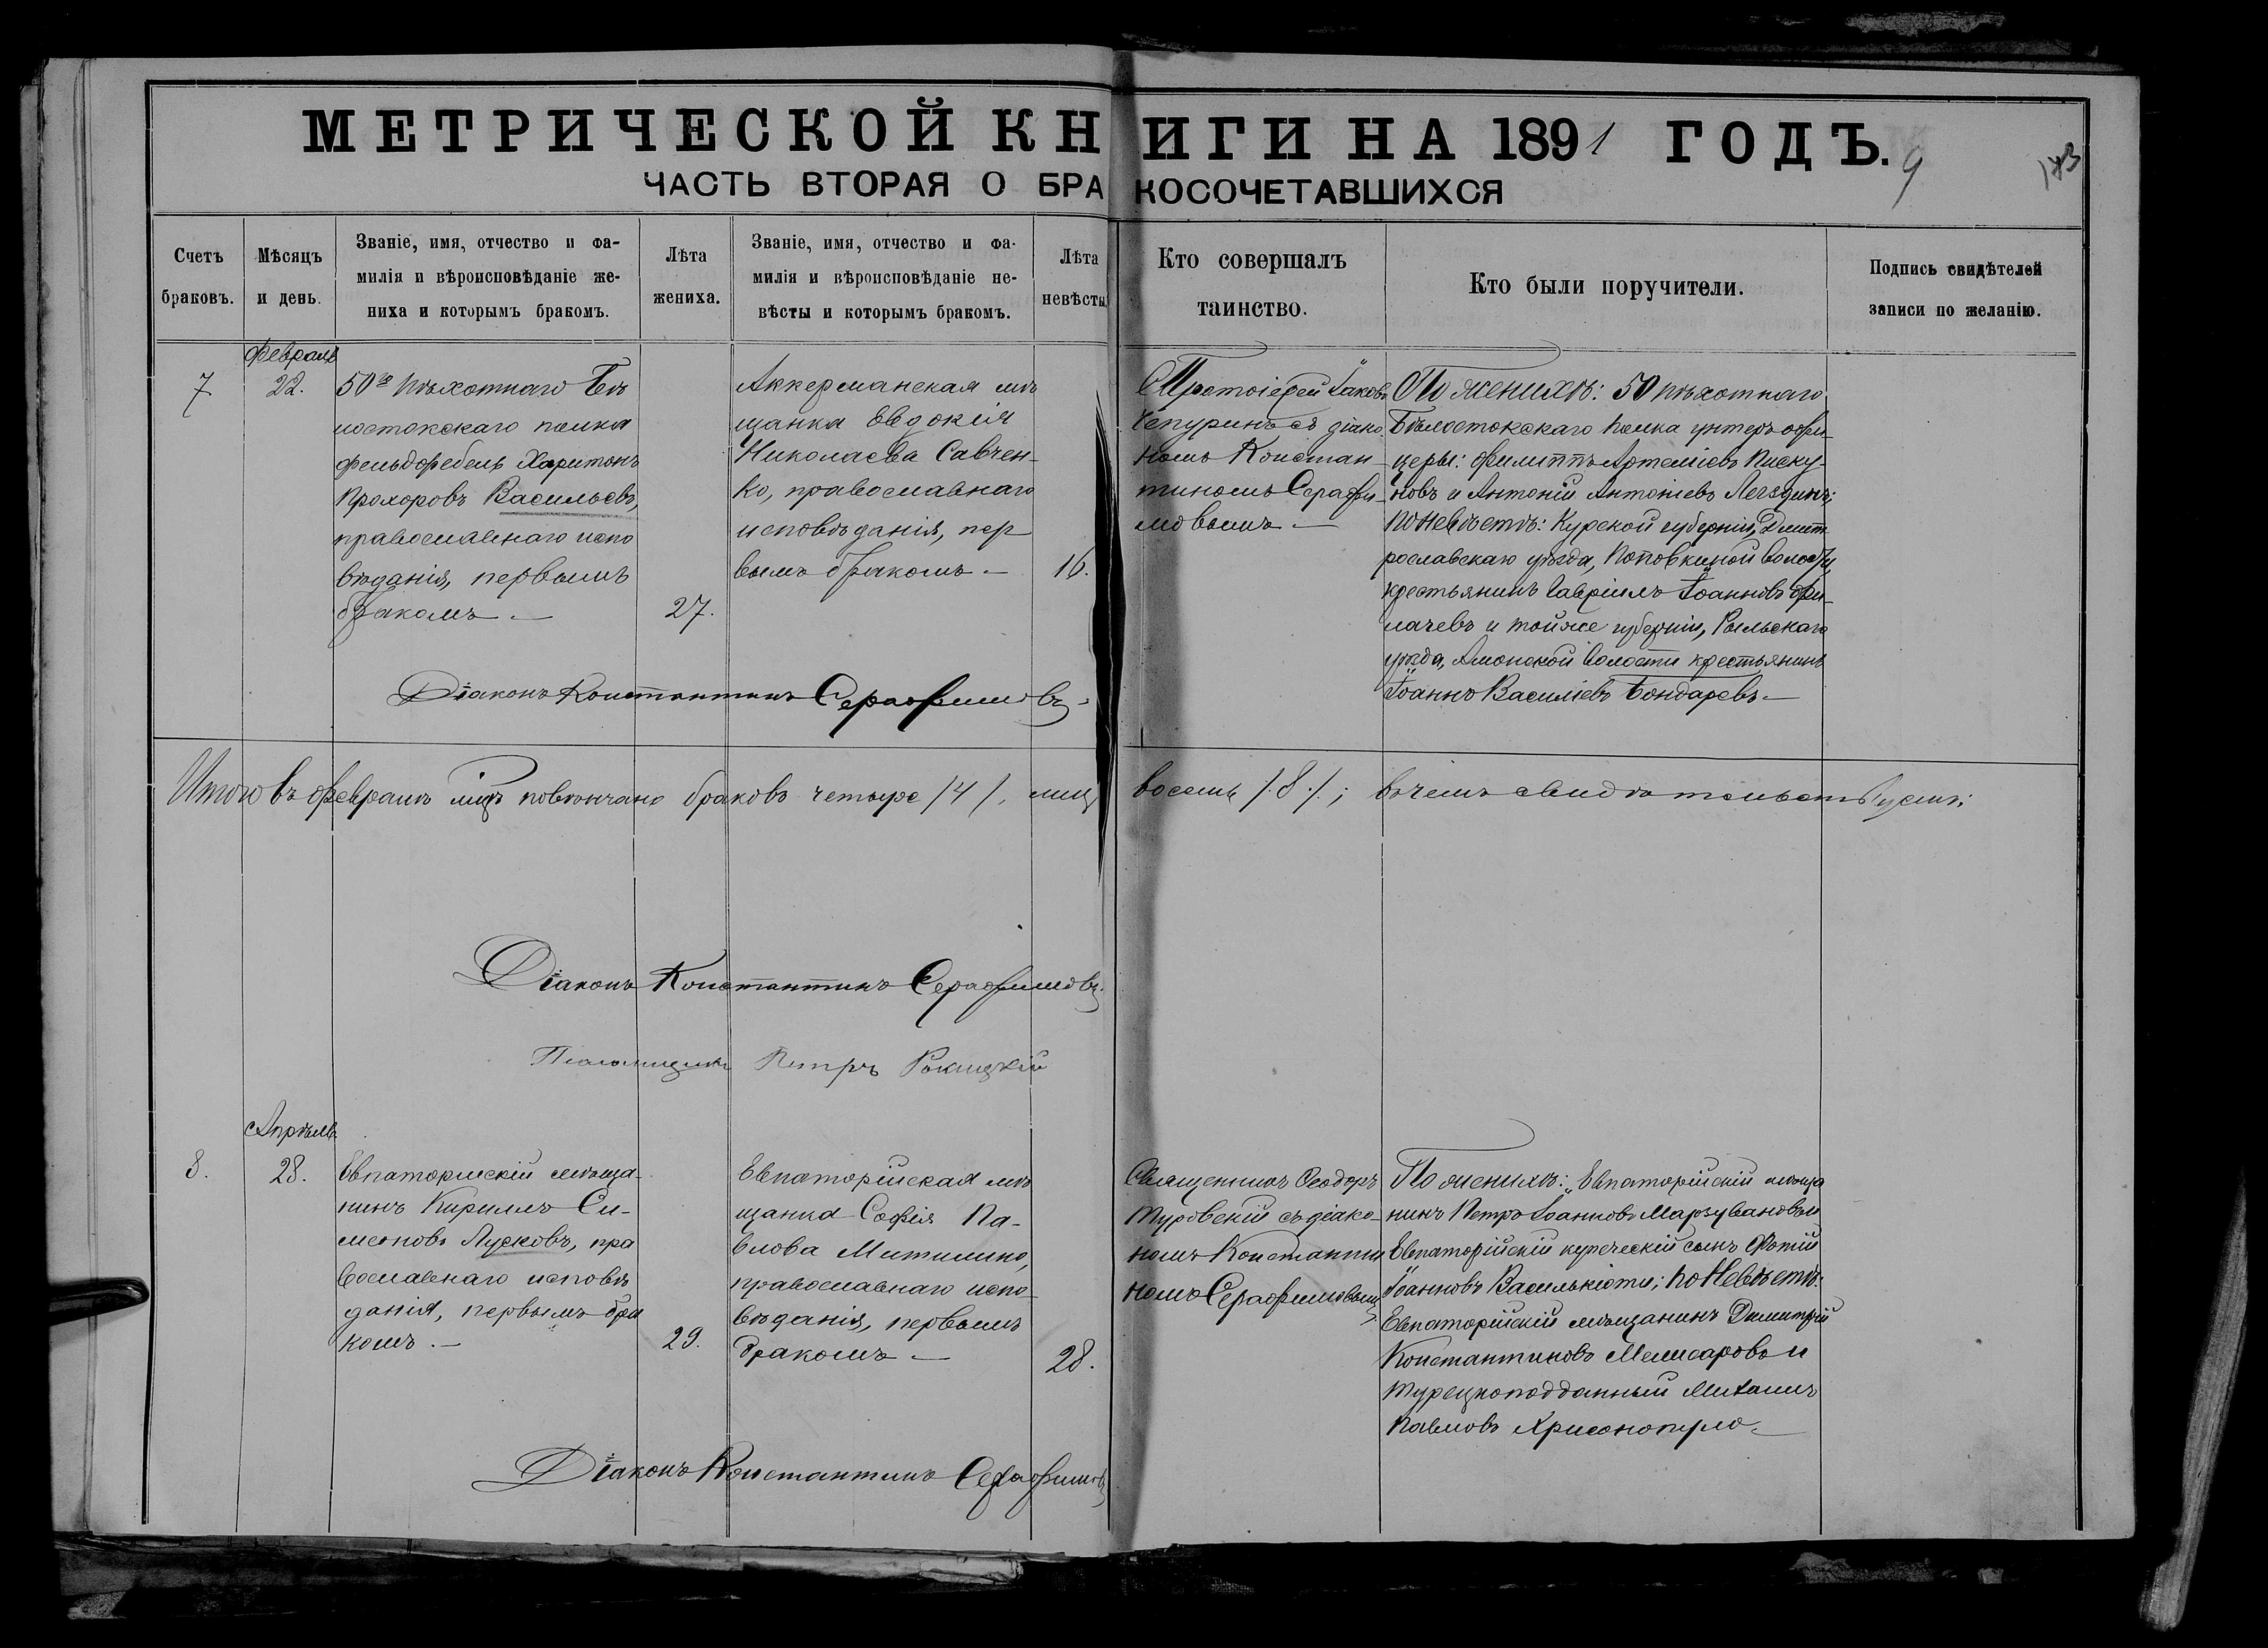 МЕТРИЧЕСКОЙ КНИГИ НА 1891 ГОДЪ.
9
ЧАСТЬ ВТОРАЯ О БРАКОСОЧЕТАВШИХСЯ
Счетъ
браковъ.
Мѣсяцъ
и день.
Званіе, имя, отчество и фа-
милія и вѣроисповѣданіе же-
ниха и которымъ бракомъ.
Лѣта
жениха.
Званіе, имя, отчество и фа-
милія и вѣроисповѣданіе не-
вѣсты и которымъ бракомъ.
Лѣта
невѣсты
Кто совершалъ
таинство.
Кто были поручители.
Подпись свидѣтелей
записи по желанію.
7
Февраль
22.
50го пѣхотнаго Бѣ
лостокскаго полка
фельдфебель Харитонъ
Прохоровъ Васильевъ,
православнаго испо
вѣданія, первымъ
бракомъ. —
27.
Аккерманская мѣ
щанка Евдокія
Николаева Савчен-
ко, православнаго
исповѣданія, пер
вымъ бракомъ —
16.
Протоіерей Іаковъ
Чепуринъ съ діако
номъ Констан-
тиномъ Серафи-
мовымъ —
По женихѣ: 50 пѣхотнаго
Бѣлостокскаго полка унтеръ офи-
церы: Филиппъ Артеміевъ Писку-
новъ и Антоній Антоніевъ
по невѣстѣ: Курской губерніи,
уѣзда, волости,
крестьянинъ Гавріилъ Іоанновъ
и той же губерніи, Рыльскаго
уѣзда, Амонской волости крестьянинъ
Іоаннъ Василіевъ Бондаревъ —
Діаконъ Константинъ Серафимовъ
Итого въ февралѣ мцѣ повѣнчано браковъ четыре /4/, лицъ восемь /.8./; въ чемъ свидѣтельствуемъ:
Діаконъ Константинъ Серафимовъ.
Псаломщикъ Петръ Рокицкій
Апрѣль
8.
28.
Евпаторійскій мѣща-
нинъ Кириллъ Си-
меоновъ Лусковъ, пра
вославнаго исповѣ
данія, первымъ бра
комъ. —
29.
Евпаторійская мѣ
щанка Софія Па-
влова Митилино,
православнаго испо-
вѣданія, первымъ
бракомъ —
28.
Священникъ Ѳеодоръ
Туровскій съ діако-
номъ Константи
номъ Серафимовымъ
По женихѣ: Евпаторійскій мѣща
нинъ Петръ Іоанновъ
Евпаторійскій купеческій сынъ Фотій
Іоанновъ Василькіоти; по невѣстѣ:
Евпаторійскій мѣщанинъ Димитрій
Константиновъ Мелисаровъ и
турецкоподданный Михаилъ
Павловъ Хрисонопуло —
Діаконъ Константинъ Серафимовъ